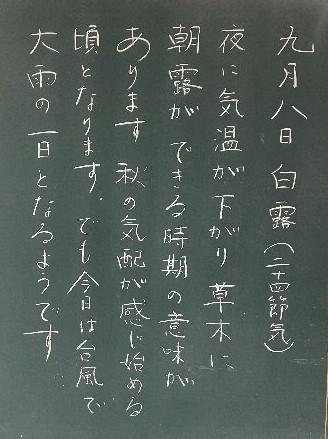 九月八日 白露(二十四節気)
夜に気温が下がり 草木に
朝露ができる時期の意味が
あります 秋の気配が感じ始める
頃となります。でも今日は台風で
大雨の一日となるようです